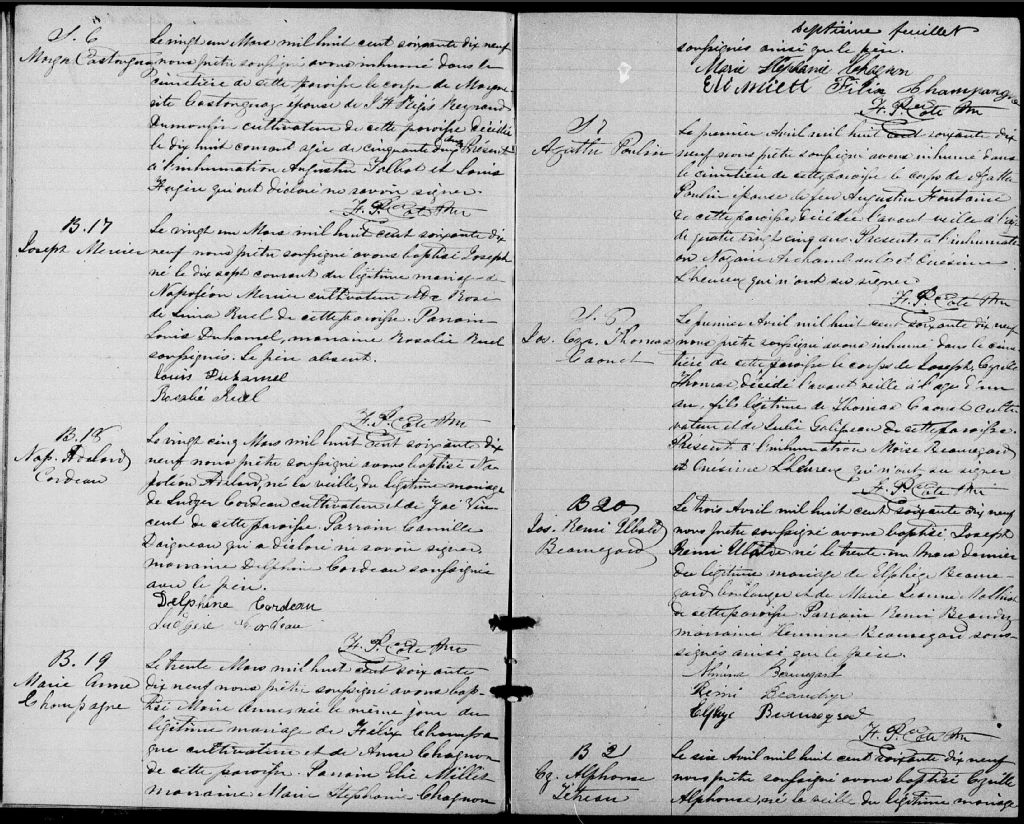 S. 6
Mgte Castonguay
Le vingt un Mars mil huit cent soixante dix neuf
nous prêtre soussigné avons inhumé dans le
cimetière de cette paroisse le corps de
Castonguay épouse de
cultivateur de cette paroisse décédée
le dix huit courant agée de cinquante
à l'inhumation Augustin Talbot et Louis
qui ont déclaré ne savoir signer.
F. P. Côté Ptre
B. 17
Joseph Mercier
Le vingt un Mars mil huit cent soixante dix
neuf nous prêtre soussigné avons baptisé Joseph
né le dix sept courant du légitime mariage de
Napoléon Mercier cultivateur et de Rose
de Lima Ruel de cette paroisse. Parrain
Louis Duhamel, marraine Rosalie Ruel
soussignés. Le père absent.
Louis Duhamel
Rosalie Ruel
F. P. Côté Ptre
B. 18
Nap. Adelard
Cordeau
Le vingt cinq Mars mil huit cent soixante dix
neuf nous prêtre soussigné avons baptisé Na-
poléon Adelard, né la veille, du légitime mariage
de Ludger Cordeau cultivateur et de Zoé Vin-
cent de cette paroisse. Parrain Camille
Daigneau qui a déclaré ne savoir signer
marraine Delphine Cordeau soussignée
avec le père.
Delphine Cordeau
Ludger Cordeau
F. P. Côté Ptre
B. 19
Marie Anne
Champagne
Le trente Mars mil huit cent soixante
dix neuf nous prêtre soussigné avons bap-
tisé Marie Anne, née le même jour du
légitime mariage de Félix Champa-
gne cultivateur et de Anne Chagnon
de cette paroisse. Parrain Elie Millet
marraine Marie Stephanie Chagnon
septième feuillet
soussignés ainsi que le père.
Marie Stephanie Chagnon
Eli Millett Félix Champangne
F. P. Côté Ptre
S. 7
Agathe Poulin
Le premier Avril mil huit cent soixante dix
neuf nous prêtre soussigné avons inhumé dans
le cimetière de cette paroisse le corps de Agathe
Poulin épouse de feu Augustin Fontaine
de cette paroisse, décédée l'avant veille à l'age
de quatre vingt cinq ans. Présents à l'inhumati-
on Nazaire Archambault et Onésime
Lheureux qui n'ont su signer.
F. P. Côté Ptre
S. 8
Jos. Cyr. Thomas
Caouet
Le premier Avril mil huit cent soixante dix neuf
nous prêtre soussigné avons inhumé dans le cime-
tière de cette paroisse le corps de Joseph, Cyrille
Thomas, décédé l'avant veille à l'age d'un
an, fils légitime de Thomas Caouet culti-
vateur et de Julie Galipeau de cette paroisse.
Présent à l'inhumation Moise Beauregard
et Onésime Lheureux qui n'ont su signer
F. P. Côté Ptre
B 20
Jos. Remi Ubald
Beauregard
Le trois Avril mil huit cent soixante dix neuf
nous prêtre soussigné avons baptisé Joseph
Remi Ubald né le trente un Mars dernier
du légitime mariage de Elphège Beaure-
gard boulanger et de Marie Leanne Mathieu
de cette paroisse. Parrain Remi Beaudry
marraine Beauregard sous-
signés ainsi que le père.
Beauregard
Remi Beaudry
Elphège Beauregard
F. P. Côté Ptre
B 2
Cy. Alphonse
Tétreau
Le six Avril mil huit cent soixante dix neuf
nous prêtre soussigné avons baptisé Cyrille
Alphonse, né la veille du légitime mariage